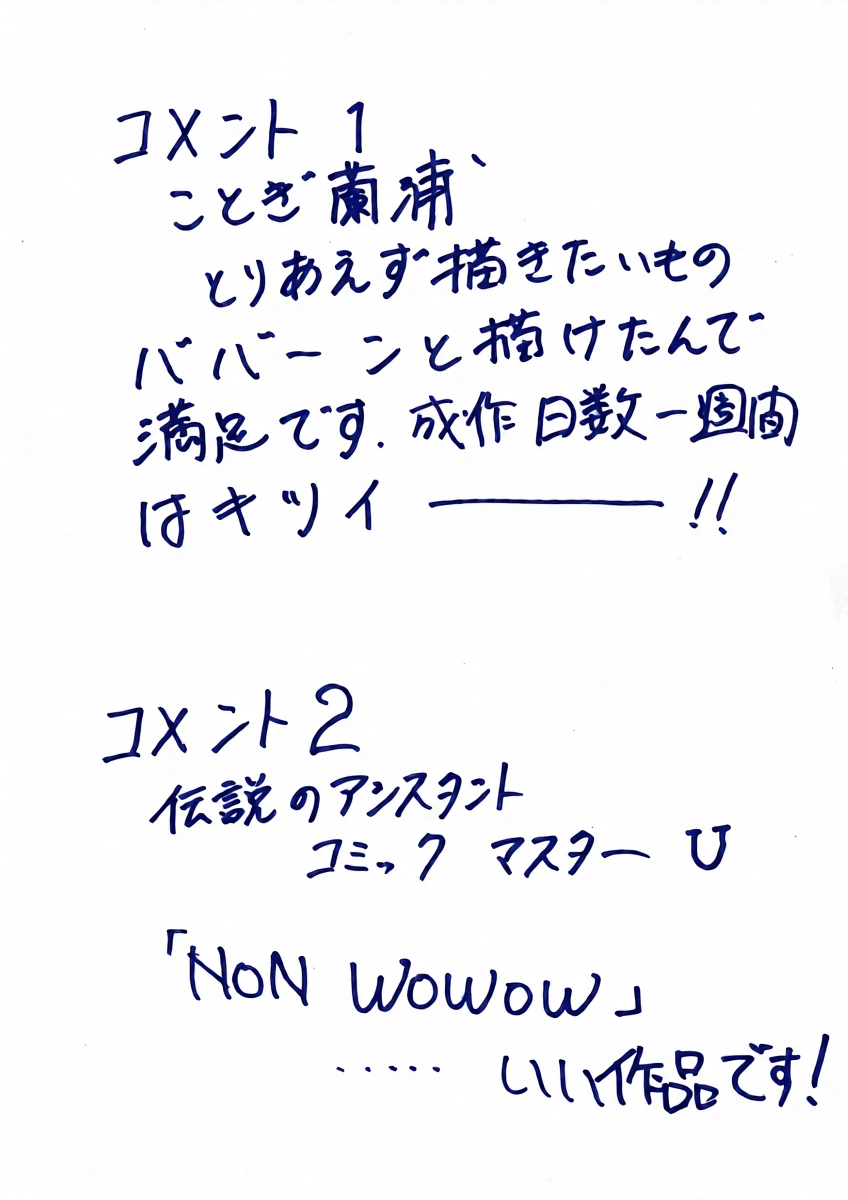 コメント 1
ことぎ蘭浦
とりあえず描きたいもの
ババーンと描けたんで
満足です. 成作日数一週間
はキツイ――――!!
コメント 2
伝説のアンスタント
コミック マスター U
「NoN WoWoW」
..... いい作品です!